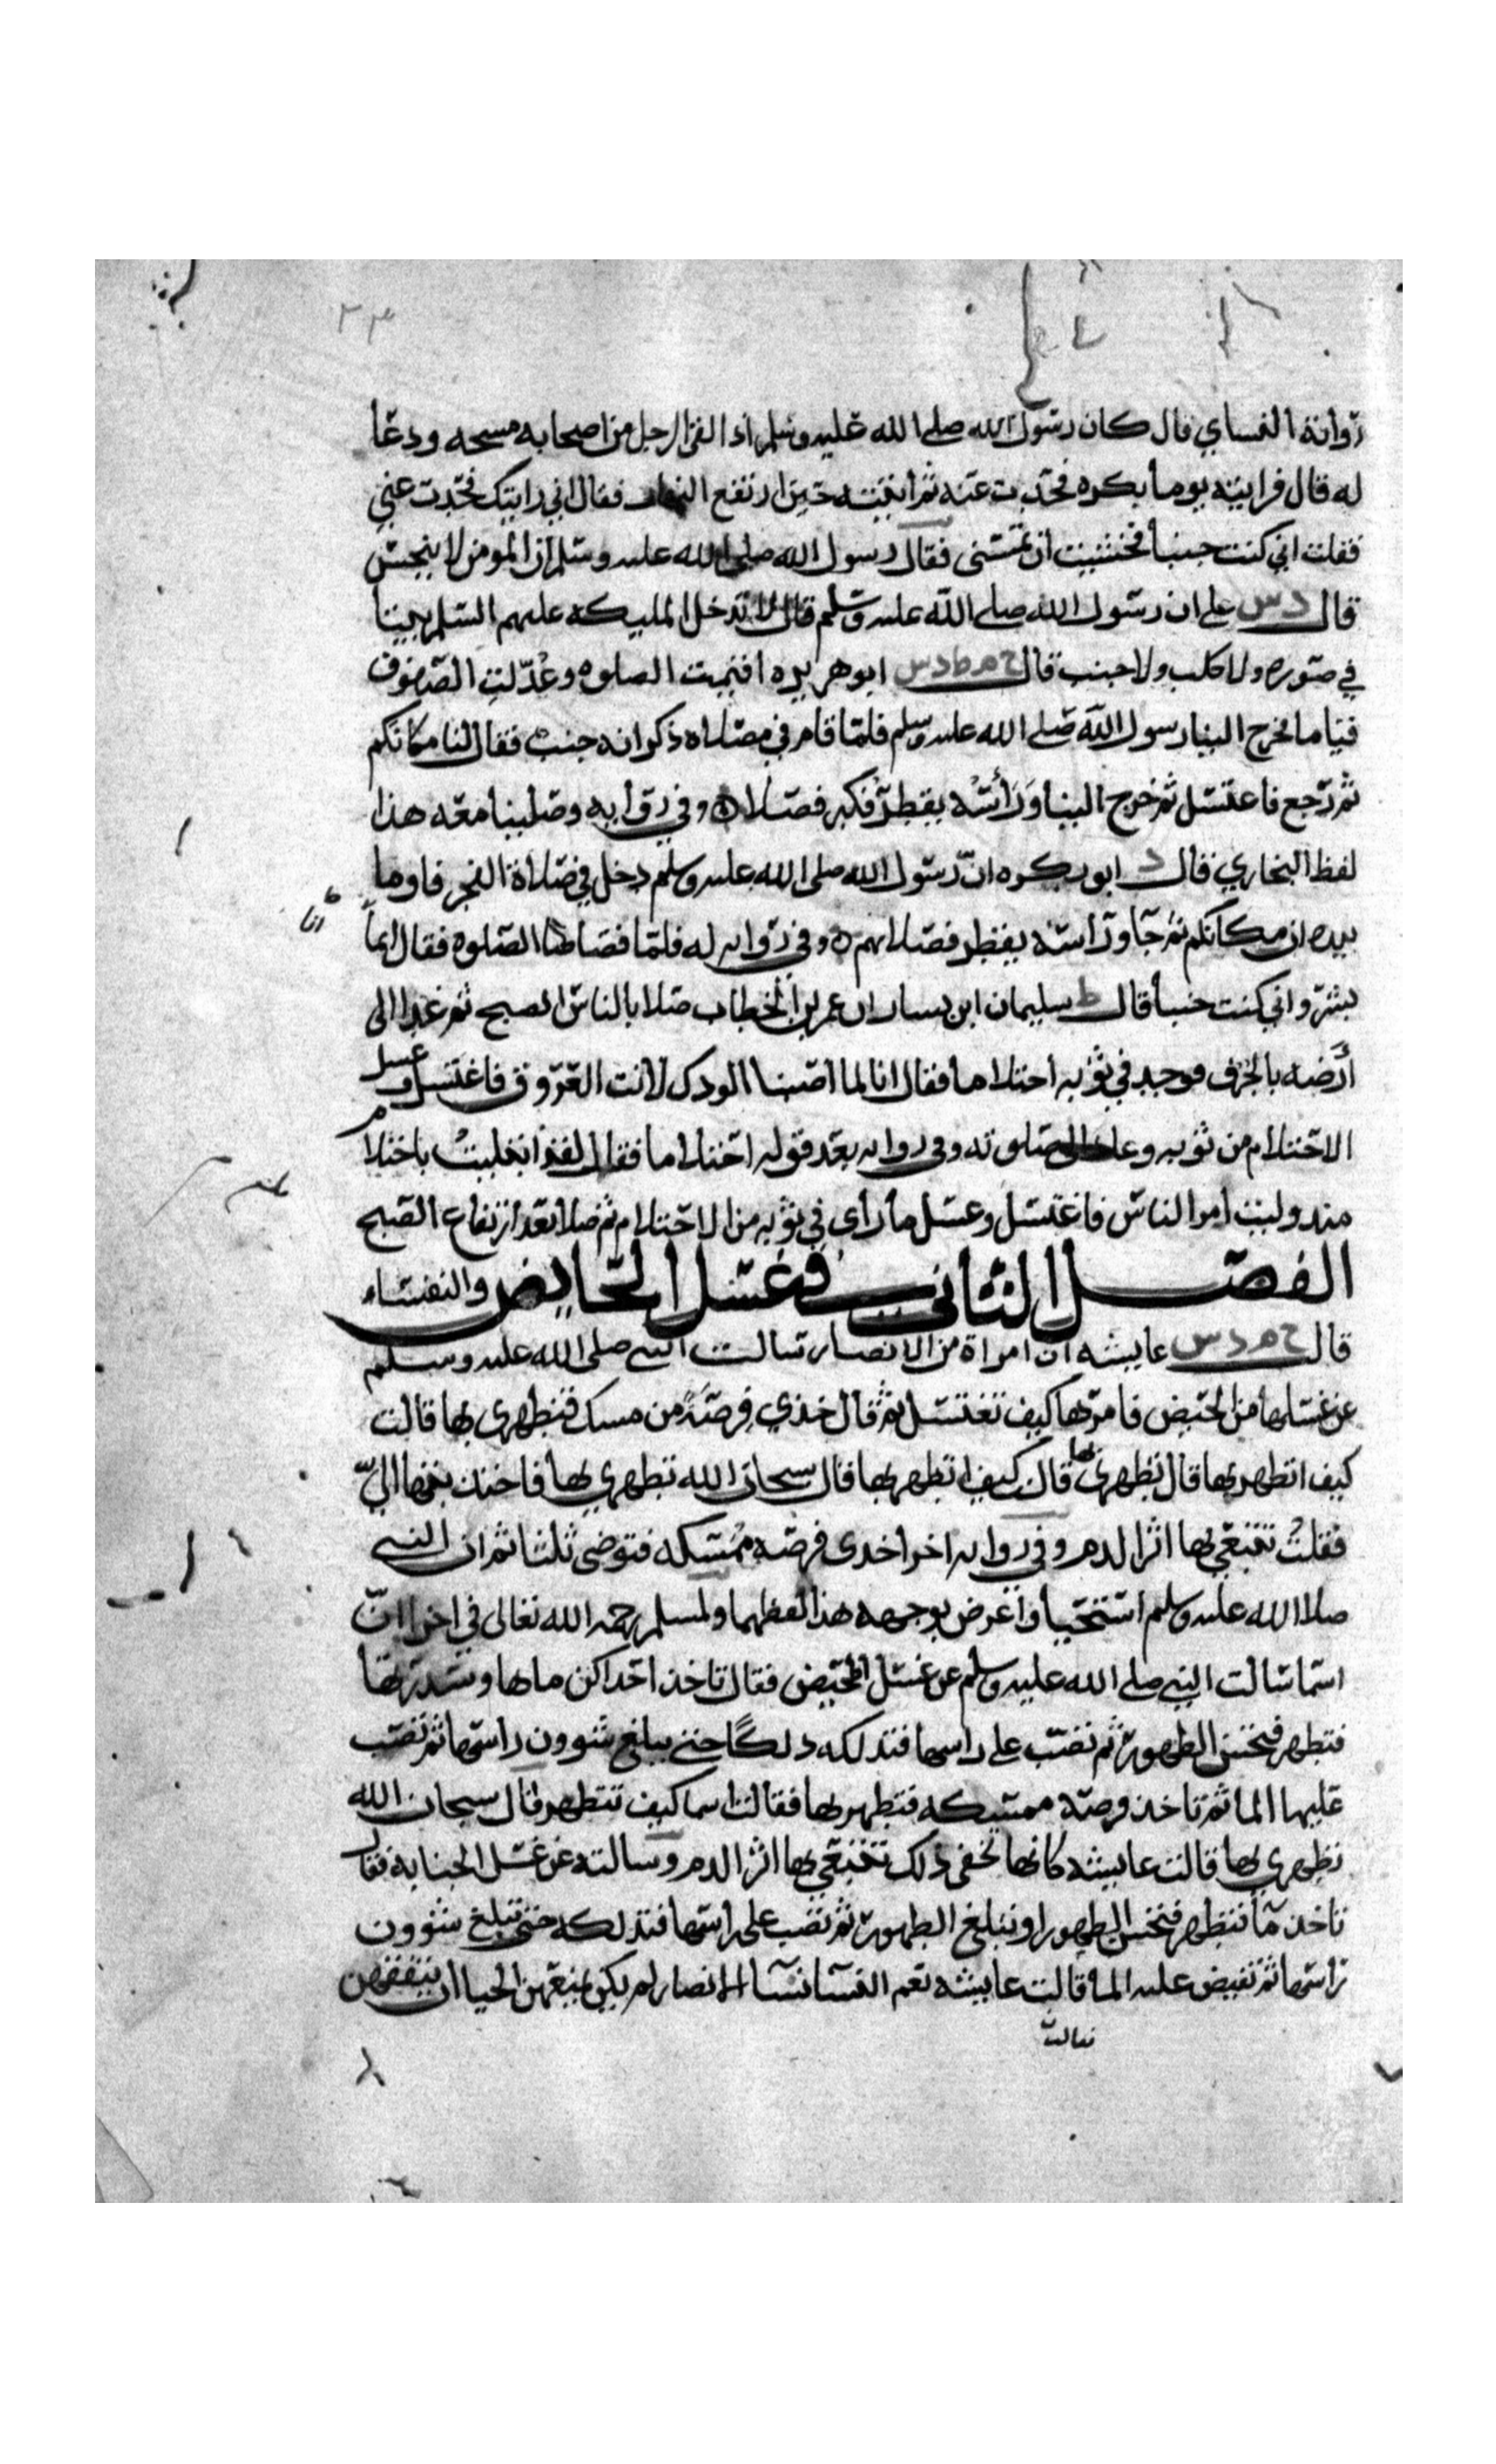 ٢٣
رواية النساي قال كان رسول الله صلى الله عليه وسلم اذا لقى الرجل من اصحابه مسحه ودعا
له قال فرايته يوما بكره فحدت عنه ثم اتيته حين ارتفع النهار فقال اني رايتك فحدت عني
فقلت اني كنت جنبا فخشيت ان تمسنى فقال رسول الله صلى الله عليه وسلم ان المومن لا ينجس
قال د س على ان رسول الله صلى الله عليه وسلم قال لا تدخل المليكه عليهم السلم بيتا
في صوره ولا كلب ولا جنب قال خ م ط د س ابو هريره اقيمت الصلوه وعدلت الصفوف
قياما فخرج الينا رسول الله صلى الله عليه وسلم فلما قام في مصلاه ذكر انه جنب فقال لنا مكانكم
ثم رجع فاغتسل ثم خرج الينا وراسه يقطر فكبر فصلا وفي روايه وصلينا معه هذا
لفظ البخاري قال د ابو بكره ان رسول الله صلى الله عليه وسلم دخل في صلاة الفجر فاوما
بيده ان مكانكم ثم جا وراسه يقطر فصلا بهم وفي روايه له فلما قضا الصلوه فقال انما
انا
بشر واني كنت جنبا قال ط سليمان ابن يسار ان عمر ابن الخطاب صلا بالناس الصبح ثم غدا الى
أرضه بالجرف فوجد في ثوبه احتلاما فقال انا لما اصبنا الودك لانت العروق فاغتسل وغسل
الاحتلام من ثوبه وعاد الى صلوته وفي روايه بعد قوله احتلاما فقال لقد ابتليت باحتلام
منذ وليت امر الناس فاغتسل وغسل ما رأى في ثوبه من الاحتلام ثم صلا بعد ارتفاع الصبح
الفصل الثاني في غسل الحايض والنفساء
قال خ م د س عايشه ان امراة من الانصار سالت النبي صلى الله عليه وسلم
عن غسلها من الحيض فامرها كيف تغتسل ثم قال خذي فرصة من مسك فتطهري بها قالت
كيف اتطهر بها قال تطهرى بها قالت كيف اتطهر بها قال سبحان الله تطهري بها فاجتذبتها الي
فقلت تتبعي بها اثر الدم وفي روايه اخرا خدى فرصه ممسكه فتوضى ثلثا ثم ان النبي
صلا الله عليه وسلم استحيا واعرض بوجهه هذا لفظهما ولمسلم رحمه الله تعالى في اخرا ان
اسما سالت النبي صلى الله عليه وسلم عن غسل المحيض فقال تاخذ احداكن ماها وسدرتها
فتطهر فتحسن الطهور ثم تصب على راسها فتدلكه دلكًا حتى يبلغ شوون راسها ثم تصب
عليها الما ثم تاخذ فرصة ممسكه فتطهر بها فقالت اسما كيف تتطهر قال سبحان الله
تطهري بها قالت عايشه كانها تخفى ذلك تتبعي بها اثر الدم وسالته عن غسل الجنابة فقال
تاخذ مآ فتطهر فتحسن الطهور او تبلغ الطهور ثم تصب على راسها فتدلكه حتى تبلغ شوون
راسها ثم تفيض عليه الما قالت عايشه نعم النسا نسا الانصار لم يكن يمنعهن الحيا ان يتفقهن